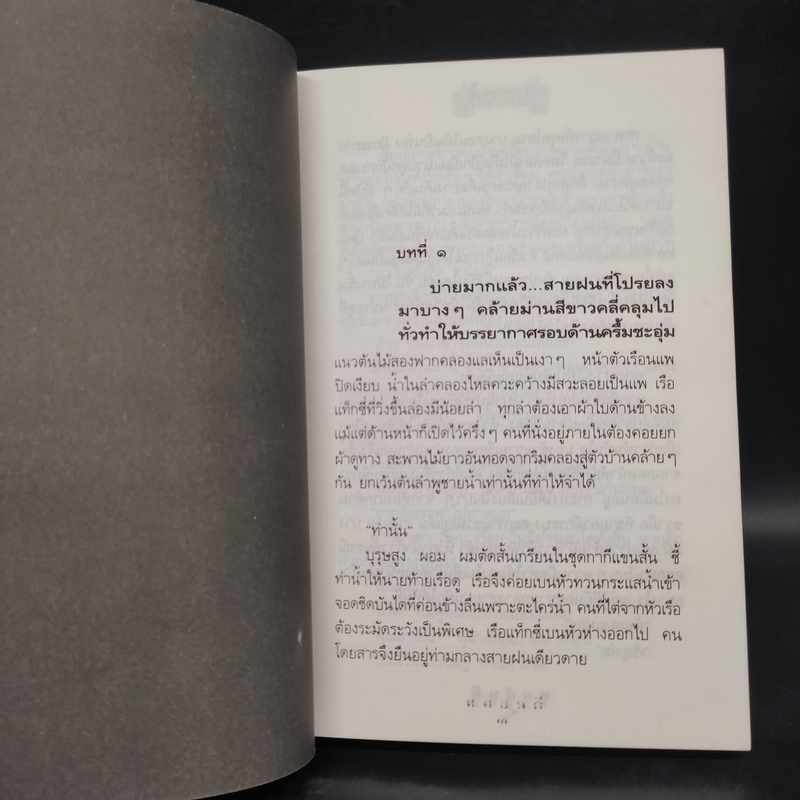 บทที่ ๑
บ่ายมากแล้ว...สายฝนที่โปรยลง
มาบางๆ คล้ายม่านสีขาวคลี่คลุมไป
ทั่วทำให้บรรยากาศรอบด้านครึ้มชะอุ่ม
แนวต้นไม้สองฟากคลองแลเห็นเป็นเงาๆ หน้าตัวเรือนแพ
ปิดเงียบ น้ำในลำคลองไหลควะคว้างมีสวะลอยเป็นแพ เรือ
แท็กซี่ที่วิ่งขึ้นล่องมีน้อยลำ ทุกลำต้องเอาผ้าใบด้านข้างลง
แม้แต่ด้านหน้าก็เปิดไว้ครึ่งๆ คนที่นั่งอยู่ภายในต้องคอยยก
ผ้าดูทาง สะพานไม้ยาวอันทอดจากริมคลองสู่ตัวบ้านคล้ายๆ
กัน ยกเว้นต้นลำพูชายน้ำเท่านั้นที่ทำให้จำได้
"ท่านั้น"
บุรุษสูง ผอม ผมตัดสั้นเกรียนในชุดกากีแขนสั้น ชี้
ท่าน้ำให้นายท้ายเรือดู เรือจึงค่อยเบนหัวทวนกระแสน้ำเข้า
จอดชิดบันไดที่ค่อนข้างลื่นเพราะตะไคร่น้ำ คนที่ไต่จากหัวเรือ
ต้องระมัดระวังเป็นพิเศษ เรือแท็กซี่เบนหัวห่างออกไป คน
โดยสารจึงยืนอยู่ท่ามกลางสายฝนเดียวดาย